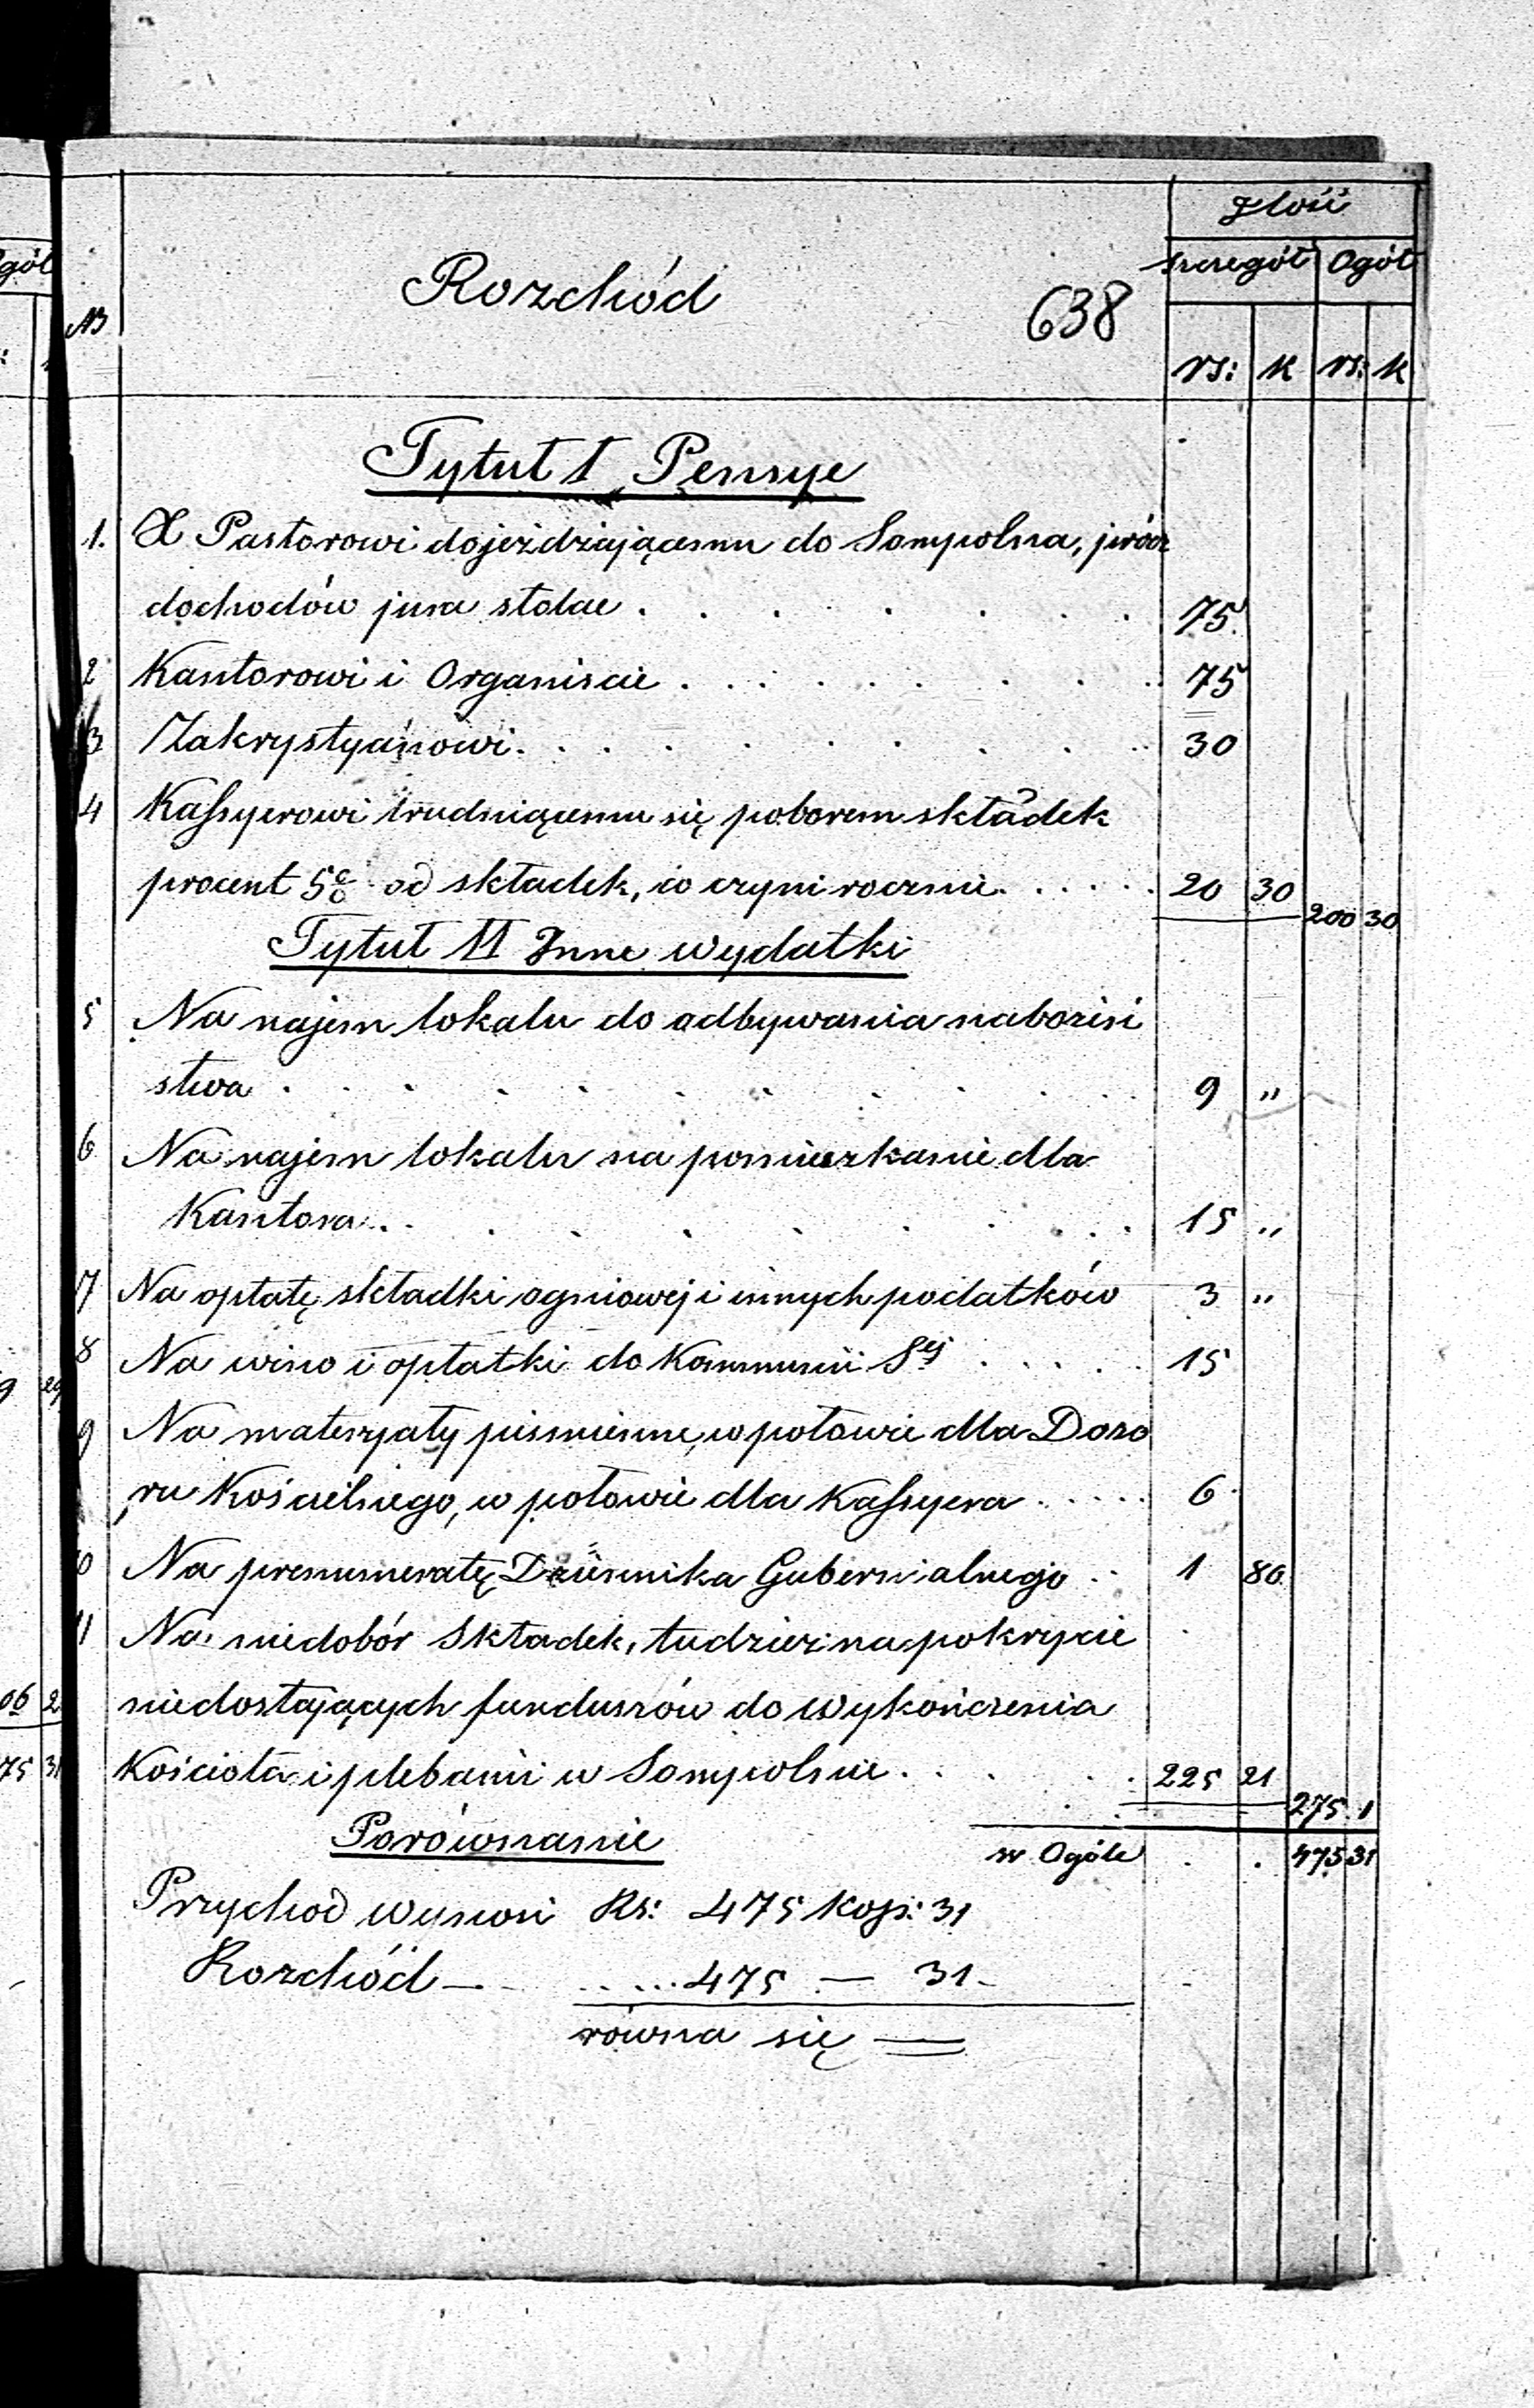 Ilość
gół
Rozchód
638
Szczegół Ogół
N3
rs: k rs: k
Tytuł I Pensye
1. X Pastorowi dojeżdżającemu do Sompolna, prócz
dochodów jura stolae . . . . . . . 75.
2 Kantorowi i Organiscie . . . . . . . . 75
3 Zakrystyanowi . . . . . . . . . 30
4 Kassyerowi trudniącemu się poborem składek
procent 5% od składek, co czyni rocznie . . . . . 20 30 200 30
Tytuł II Inne wydatki
5 Na najem lokalu do odbywania nabożeń
stwa . . . . . . . . . 9 "
6 Na najem lokalu na pomieszkanie dla
Kantora . . . . . . . . . 15 "
7 Na opłatę składki ogniowej i innych podatków 3 "
8 Na wino i opłatki do Kommunii Sej . . . . . 15
9 Na materyały piśmienne, w połowie dla Dozo
ru Kościelnego, w połowie dla Kassyera . . . . . 6
10 Na prenumeratę Dziennika Gubernialnego . . 1 80
11 Na niedobór składek, tudzież na pokrycie
niedostających funduszów do wykończenia
Kościoła i plebanii w Sompolnie . . . . . 225 21
275 1
Porównanie
w Ogóle . . 475 31
Przychod wynosi Rs: 475 Kop: 31
Rozchód — . . . . 475 — 31 -
równa się =